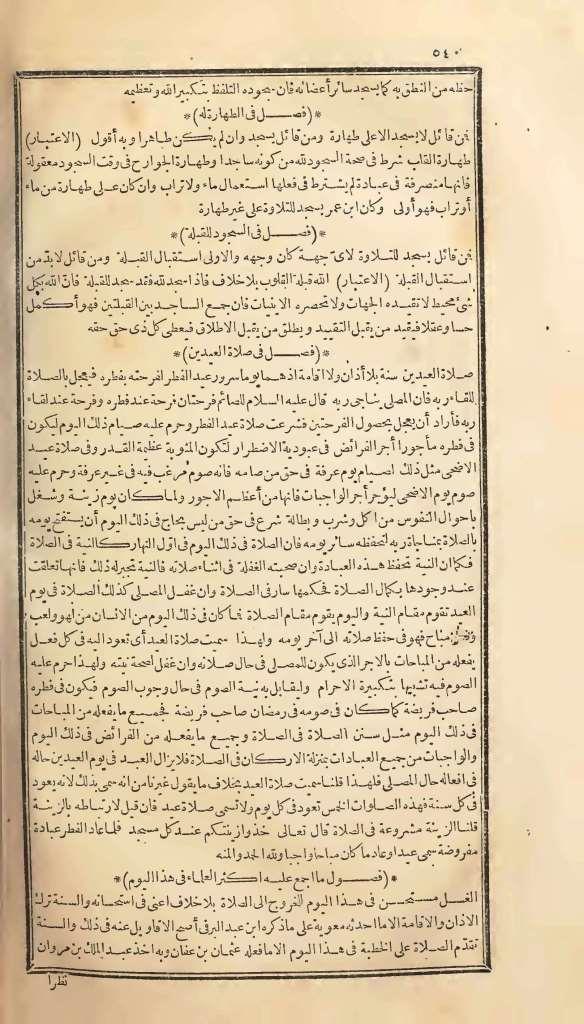 ٥٤٠
حظه من النطق به كما يسجد سائر أعضائه فان سجوده التلفظ بتكبير الله وتعظيمه
*(فصــل فى الطهارة له)*
فمن قائل لا يسجد الا على طهارة ومن قائل يسجد وان لم يكن طاهرا وبه أقول (الاعتبار)
طهارة القلب شرط فى صحة السجود لله من كونه ساجدا وطهارة الجوارح فى وقت السجود معقولة
فانها منصرفة فى عبادة لم يشترط فى فعلها استعمال ماء ولا تراب وان كان على طهارة من ماء
أو تراب فهو أولى وكان ابن عمر يسجد للتلاوة على غير طهارة
*(فصــل فى السجود للقبلة)*
فمن قائل يسجد للتلاوة لاى جهة كان وجهه والاولى استقبال القبلة ومن قائل لابد من
استقبال القبلة (الاعتبار) الله قبلة القلوب بلا خلاف فاذا سجد لله فقد سجد للقبلة فان الله بكل
شئ محيط لا تقيده الجهات ولا تحصره الاينيات فان جمع الساجد بين القبلتين فهو أكمل
حسا وعقلا فيقيد من يقبل التقييد ويطلق من يقبل الاطلاق فيعطى كل ذى حق حقه
*(فصــل فى صلاة العيدين)*
صلاة العيدين سنة بلا أذان ولا اقامة اذ هما يوما سرور عيد الفطر لفرحته بفطره فيعجل بالصلاة
للقاء ربه فان المصلى يناجى ربه قال عليه السلام للصائم فرحتان فرحة عند فطره وفرحة عند لقاء
ربه فأراد أن يعجل بحصول الفرحتين فشرعت صلاة عيد الفطر وحرم عليه صيام ذلك اليوم ليكون
فى فطره مأجورا أجر الفرائض فى عبودية الاضطرار لتكون المثوبة عظيمة القدر وفى صلاة عيد
الاضحى مثل ذلك لصيام يوم عرفة فى حق من صامه فانه صوم مرغب فيه فى غير عرفة وحرم عليه
صوم يوم الاضحى ليؤجر أجر الواجبات فانها من أعظم الاجور ولما كان يوم زينة وشغل
باحوال النفوس من اكل وشرب وبطالة شرع فى حق من ليس بحاج فى ذلك اليوم أن يستفتح يومه
بالصلاة بمناجاة ربه لتحفظه سائر يومه فان الصلاة فى ذلك اليوم فى اول النهار كالنية فى الصلاة
فكما ان النية تحفظ هذه العبادة وان صحبته الغفلة فى اثناء صلاته فالنية تجبر له ذلك فانها تعلقت
عند وجودها بكمال الصلاة فحكمها سار فى الصلاة وان غفل المصلى كذلك الصلاة فى يوم
العيد تقوم مقام النية واليوم يقوم مقام الصلاة فما كان فى ذلك اليوم من الانسان من لهو ولعب
مباح فهو فى حفظ صلاته الى آخر يومه ولهذا سميت صلاة العيد أى تعود اليه فى كل فعل
يفعله من المباحات بالاجر الذى يكون للمصلى فى حال صلاته وان غفل لصحة نيته ولهذا حرم عليه
الصوم فيه تشبيها بتكبيرة الاحرام وليقابل به نية الصوم فى حال وجوب الصوم فيكون فى فطره
صاحب فريضة كما كان فى صومه فى رمضان صاحب فريضة فجميع ما يفعله من المباحات
فى ذلك اليوم مثل سنن الصلاة فى الصلاة وجميع ما يفعله من الفرائض فى ذلك اليوم
والواجبات من جميع العبادات بمنزلة الاركان فى الصلاة فلا يزال العبد فى يوم العيدين حاله
فى افعاله حال المصلى فلهذا قلنا سميت صلاة العيد بخلاف ما يقول غيرنا من انه سمى بذلك لانه يعود
فى كل سنة فهذه الصلوات الخمس تعود فى كل يوم ولا تسمى صلاة عيد فان قيل لارتباطه بالزينة
قلنا الزينة مشروعة فى الصلاة قال تعالى خذوا زينتكم عند كل مسجد فلما عاد الفطر عبادة
مفروضة سمى عيدا وعاد ما كان مباحا واجبا ولله الحمد والمنه
*(فصــول ما اجمع عليه اكثر العلماء فى هذا اليوم)*
الغسل مستحسن فى هذا اليوم للخروج الى الصلاة بلا خلاف اعنى فى استحسانه والسنة ترك
الاذان والاقامة الا ما احدثه معوية على ما ذكره ابن عبد البر فى أصح الاقاويل عنه فى ذلك والسنة
تقدم الصلاة على الخطبة فى هذا اليوم الا ما فعله عثمان بن عفان وبه اخذ عبد الملك بن مروان
نظرا